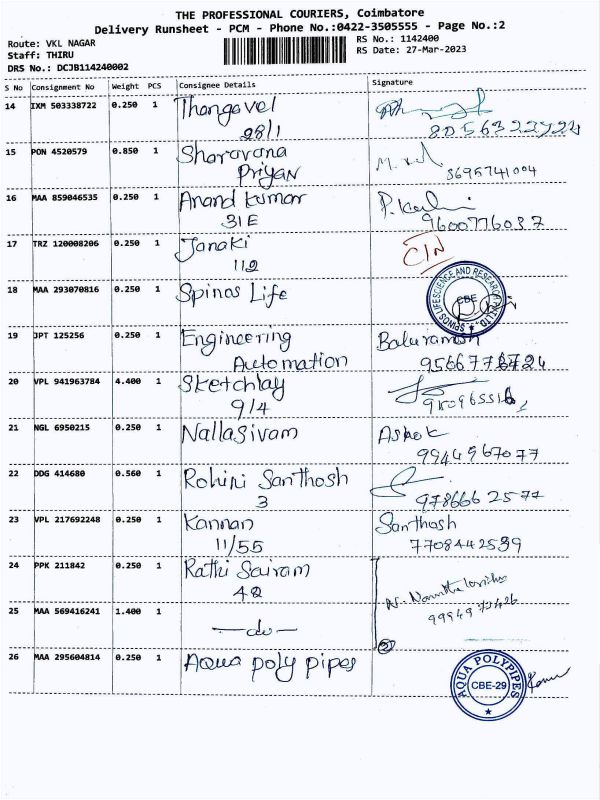 THE PROFESSIONAL COURIERS, Coimbatore
Delivery Runsheet - PCM - Phone No.:0422-3505555 - Page No.:2
Route: VKL NAGAR RS No.: 1142400
Staff: THIRU RS Date: 27-Mar-2023
DRS No.: DCJB114240002
S No Consignment No Weight PCS Consignee Details Signature
14 IXM 503338722 0.250 1 Thangavel
28/1 8056322724
15 PON 4520579 0.850 1 Sharavana
Priyan 3695741004
16 MAA 859046535 0.250 1 Anand kumar
31E 9600776037
17 TRZ 120008206 0.250 1 Janaki
112
18 MAA 293070816 0.250 1 Spinos Life SPINOS LIFESCIENCE AND RESEARCH PVT LTD CBE
19 JPT 125256 0.250 1 Engineering
Automation
20 VPL 941963784 4.400 1 Sketchlay
9/4
21 NGL 6950215 0.250 1 Nallasivam Ashok
9944967077
22 DDG 414680 0.560 1 Rohini Santhosh
3 9786662577
23 VPL 217692248 0.250 1 Kannan Santhosh
11/55 7708442539
24 PPK 211842 0.250 1 Rathi Sairam
42
25 MAA 569416241 1.400 1
-do- 2
26 MAA 295604814 0.250 1 Aqua poly pipes AQUA POLYPIPES CBE-29